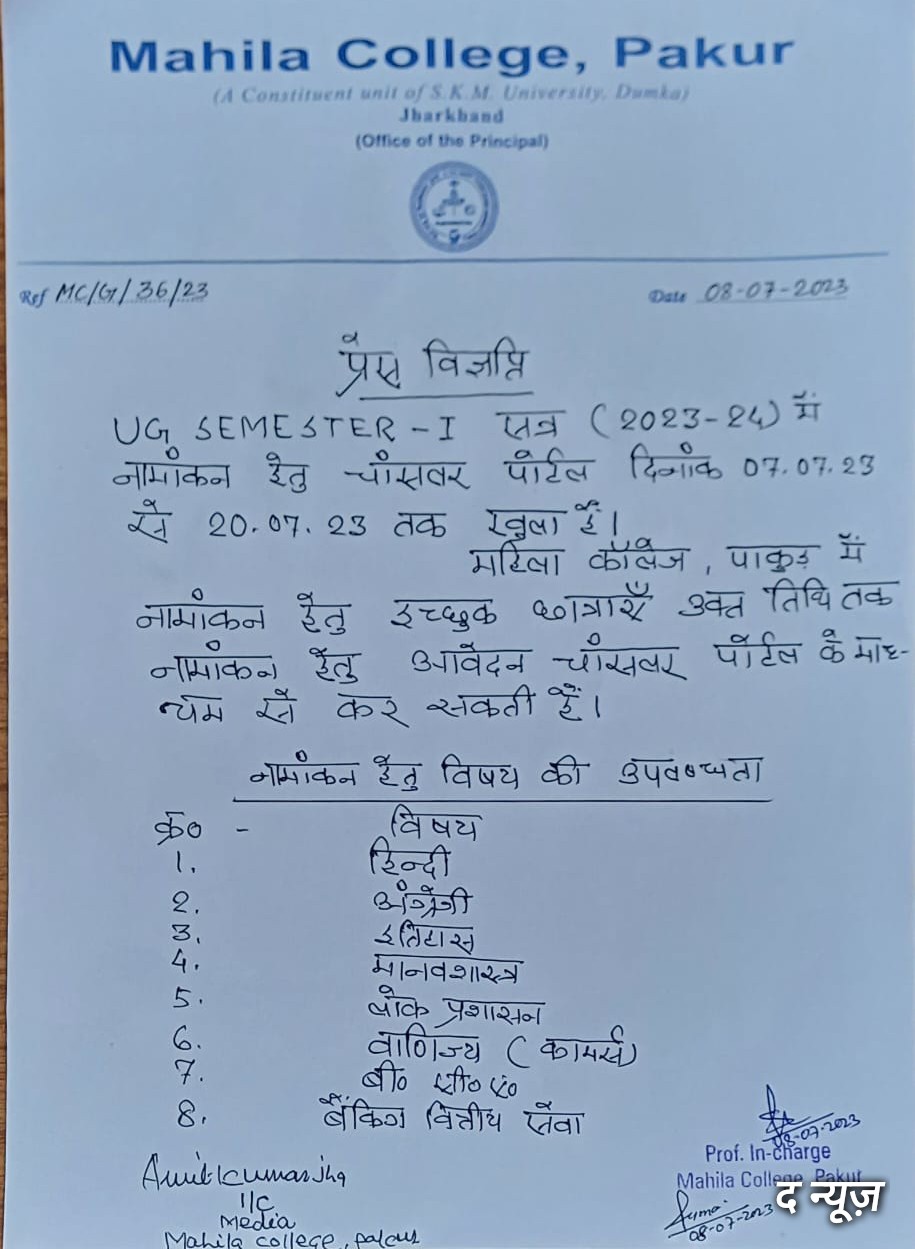 Mahila College, Pakur
(A Constituent unit of S.K.M. University, Dumka)
Jharkhand
(Office of the Principal)
Ref MC/G/36/23
Date 08-07-2023
प्रेस विज्ञप्ति
UG SEMESTER-I सत्र (2023-24) में
नामांकन हेतु चांसलर पोर्टल दिनांक 07.07.23
से 20.07.23 तक खुला है।
महिला कॉलेज, पाकुड़ में
नामांकन हेतु इच्छुक छात्राएँ उक्त तिथि तक
नामांकन हेतु आवेदन चांसलर पोर्टल के माध-
्यम से कर सकती हैं।
नामांकन हेतु विषय की उपलब्धता
क्र० - विषय
1. हिन्दी
2. अंग्रेजी
3. इतिहास
4. मानवशास्त्र
5. लोक प्रशासन
6. वाणिज्य (कामर्स)
7. बी० सी० ए०
8. बैंकिग वित्तीय सेवा
08-07-2023
Prof. In-charge
Mahila College, Pakur
Amit Kumar Jha
I/C
Media
Mahila college, pakur
08-07-2023
द न्यूज़